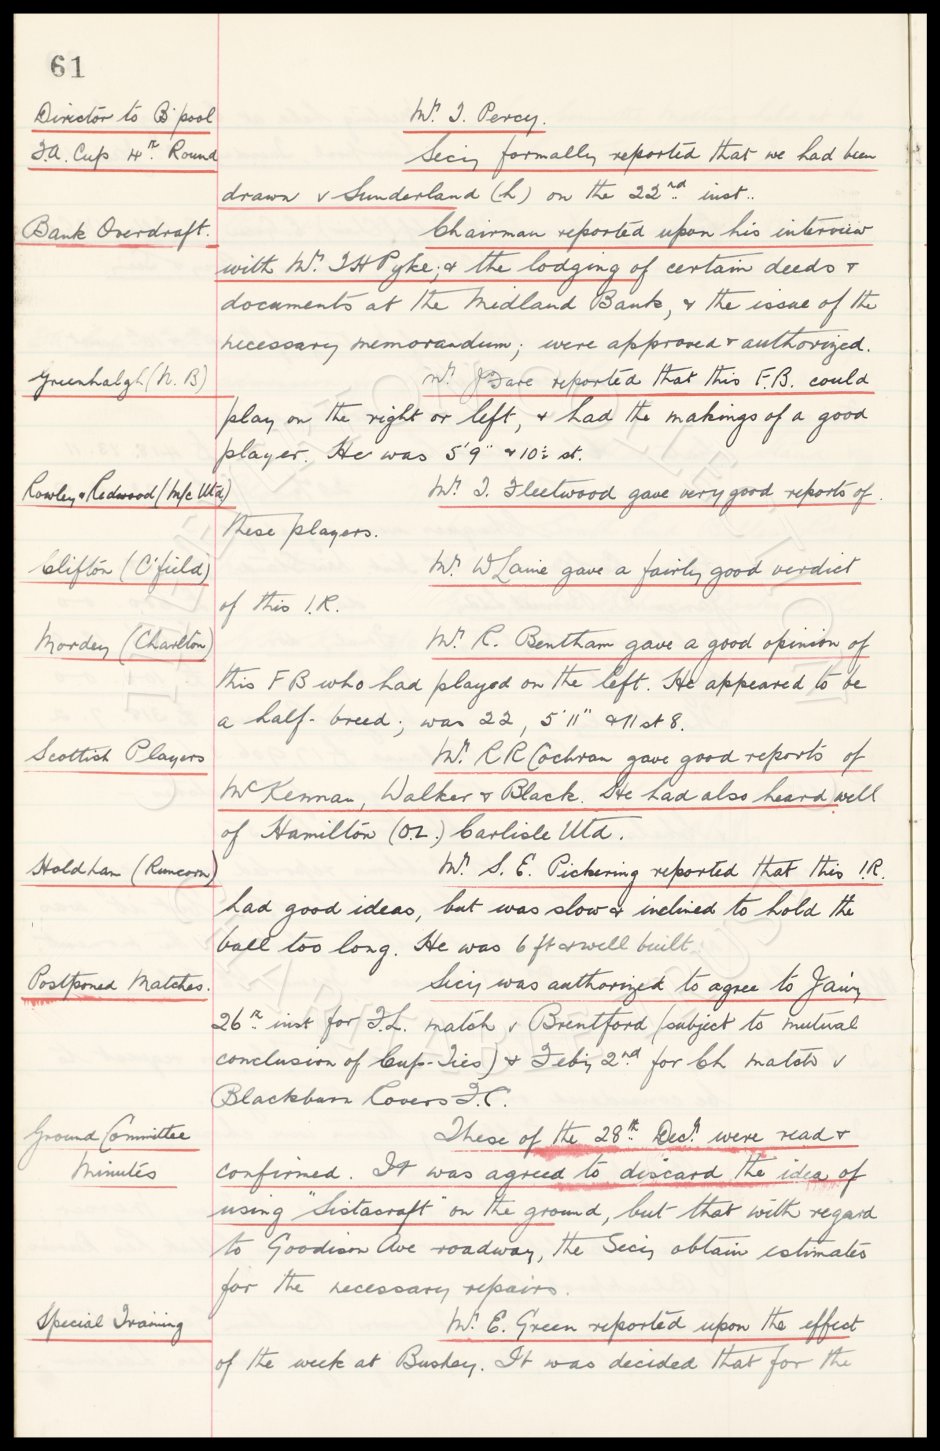 61
Director to B'pool Mr. T. Percy.
F.A. Cup 4th. Round Secy formally reported that we had been
drawn v Sunderland (h) on the 22nd inst..
Bank Overdraft. Chairman reported upon his interview
with Mr. T H Pyke; & the lodging of certain deeds &
documents at the Midland Bank, & the issue of the
necessary memorandum; were approved & authorized.
Greenhalgh (N. B) Mr. J Fare reported that this F.B. could
play on the right or left, & had the makings of a good
player. He was 5'9" & 10½ st.
Rowley & Redwood (M/c Utd) Mr. T. Fleetwood gave very good reports of
these players.
Clifton (C'field) Mr. W Laine gave a fairly good verdict
of this I.R.
Mordey (Charlton) Mr. R. Bentham gave a good opinion of
this F B who had played on the left. He appeared to be
a half-breed; was 22, 5'11" & 11 st 8.
Scottish Players Mr. R R Cochran gave good reports of
McKennan, Walker & Black. He had also heard well
of Hamilton (O.L.) Carlisle Utd.
Holdhan (Runcorn) Mr. S. E. Pickering reported that this I.R.
had good ideas, but was slow & inclined to hold the
ball too long. He was 6 ft & well built.
Postponed Matches. Secy was authorized to agree to Jany
26th inst for F.L. match v Brentford (subject to mutual
conclusion of Cup-Ties) & Feby 2nd for Ch match v
Blackburn Rovers F.C.
Ground Committee These of the 28th Decr. were read &
Minutes confirmed. It was agreed to discard the idea of
using "Sistacraft" on the ground, but that with regard
to Goodison Ave roadway, the Secy obtain estimates
for the necessary repairs.
Special Training Mr. E. Green reported upon the effect
of the week at Bushey. It was decided that for the